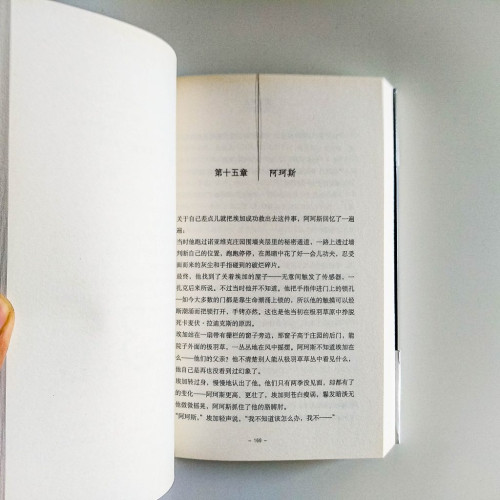 第十五章 阿珂斯
关于自己差点儿就把埃加成功救出去这件事，阿珂斯回忆了一遍
遍：
当时他跑过诺亚维克庄园围墙夹层里的秘密通道，一路上透过墙
判断自己的位置，跑跑停停，在黑暗中花了好一会儿功夫，忍受
面而来的灰尘和手指碰到的破烂碎片。
最终，他找到了关着埃加的屋子——无意间触发了传感器，一
扎克后来所说。不过当时他并不知道。他把手指伸进门上的锁孔
—如今大多数的门都是靠生命潮涌上锁的，所以他的触摸可以给
断潮涌而把锁打开，手铐亦然。这也是他当初在极羽草原中挣脱
托卡麦伏·拉迪克斯的原因。
埃加站在一扇带有栅栏的窗子旁边，那窗子高于庄园的后门，能
院子外面的极羽草，一丛丛地在风中摇摆。阿珂斯不知道埃加在
么——他们的父亲？他不清楚别人能从极羽草草丛中看见什么，
他自己是再也没看到过幻象了。
埃加转过身，慢慢地认出了他。他们只有两季没见面，却都有了
的变化——阿珂斯更高、更壮了，埃加则苍白瘦弱，鬈发暗淡无
他微微摇晃，阿珂斯抓住了他的胳膊肘。
“阿珂斯，”埃加轻声说，“我不知道该怎么办，我不——”
- 166 -